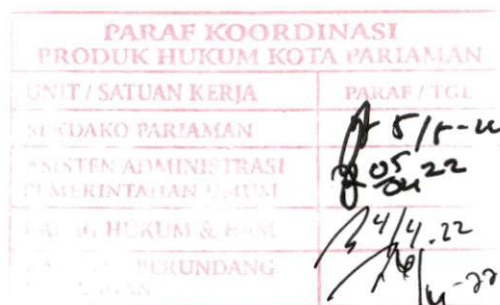 PARAF KOORDINASI
PRODUK HUKUM KOTA PARIAMAN
UNIT / SATUAN KERJA PARAF / TGL
SEKDAKO PARIAMAN
ASISTEN ADMINISTRASI
PEMERINTAHAN UMUM 05/04 22
KABAG HUKUM & HAM 4/4.22
PERUNDANG